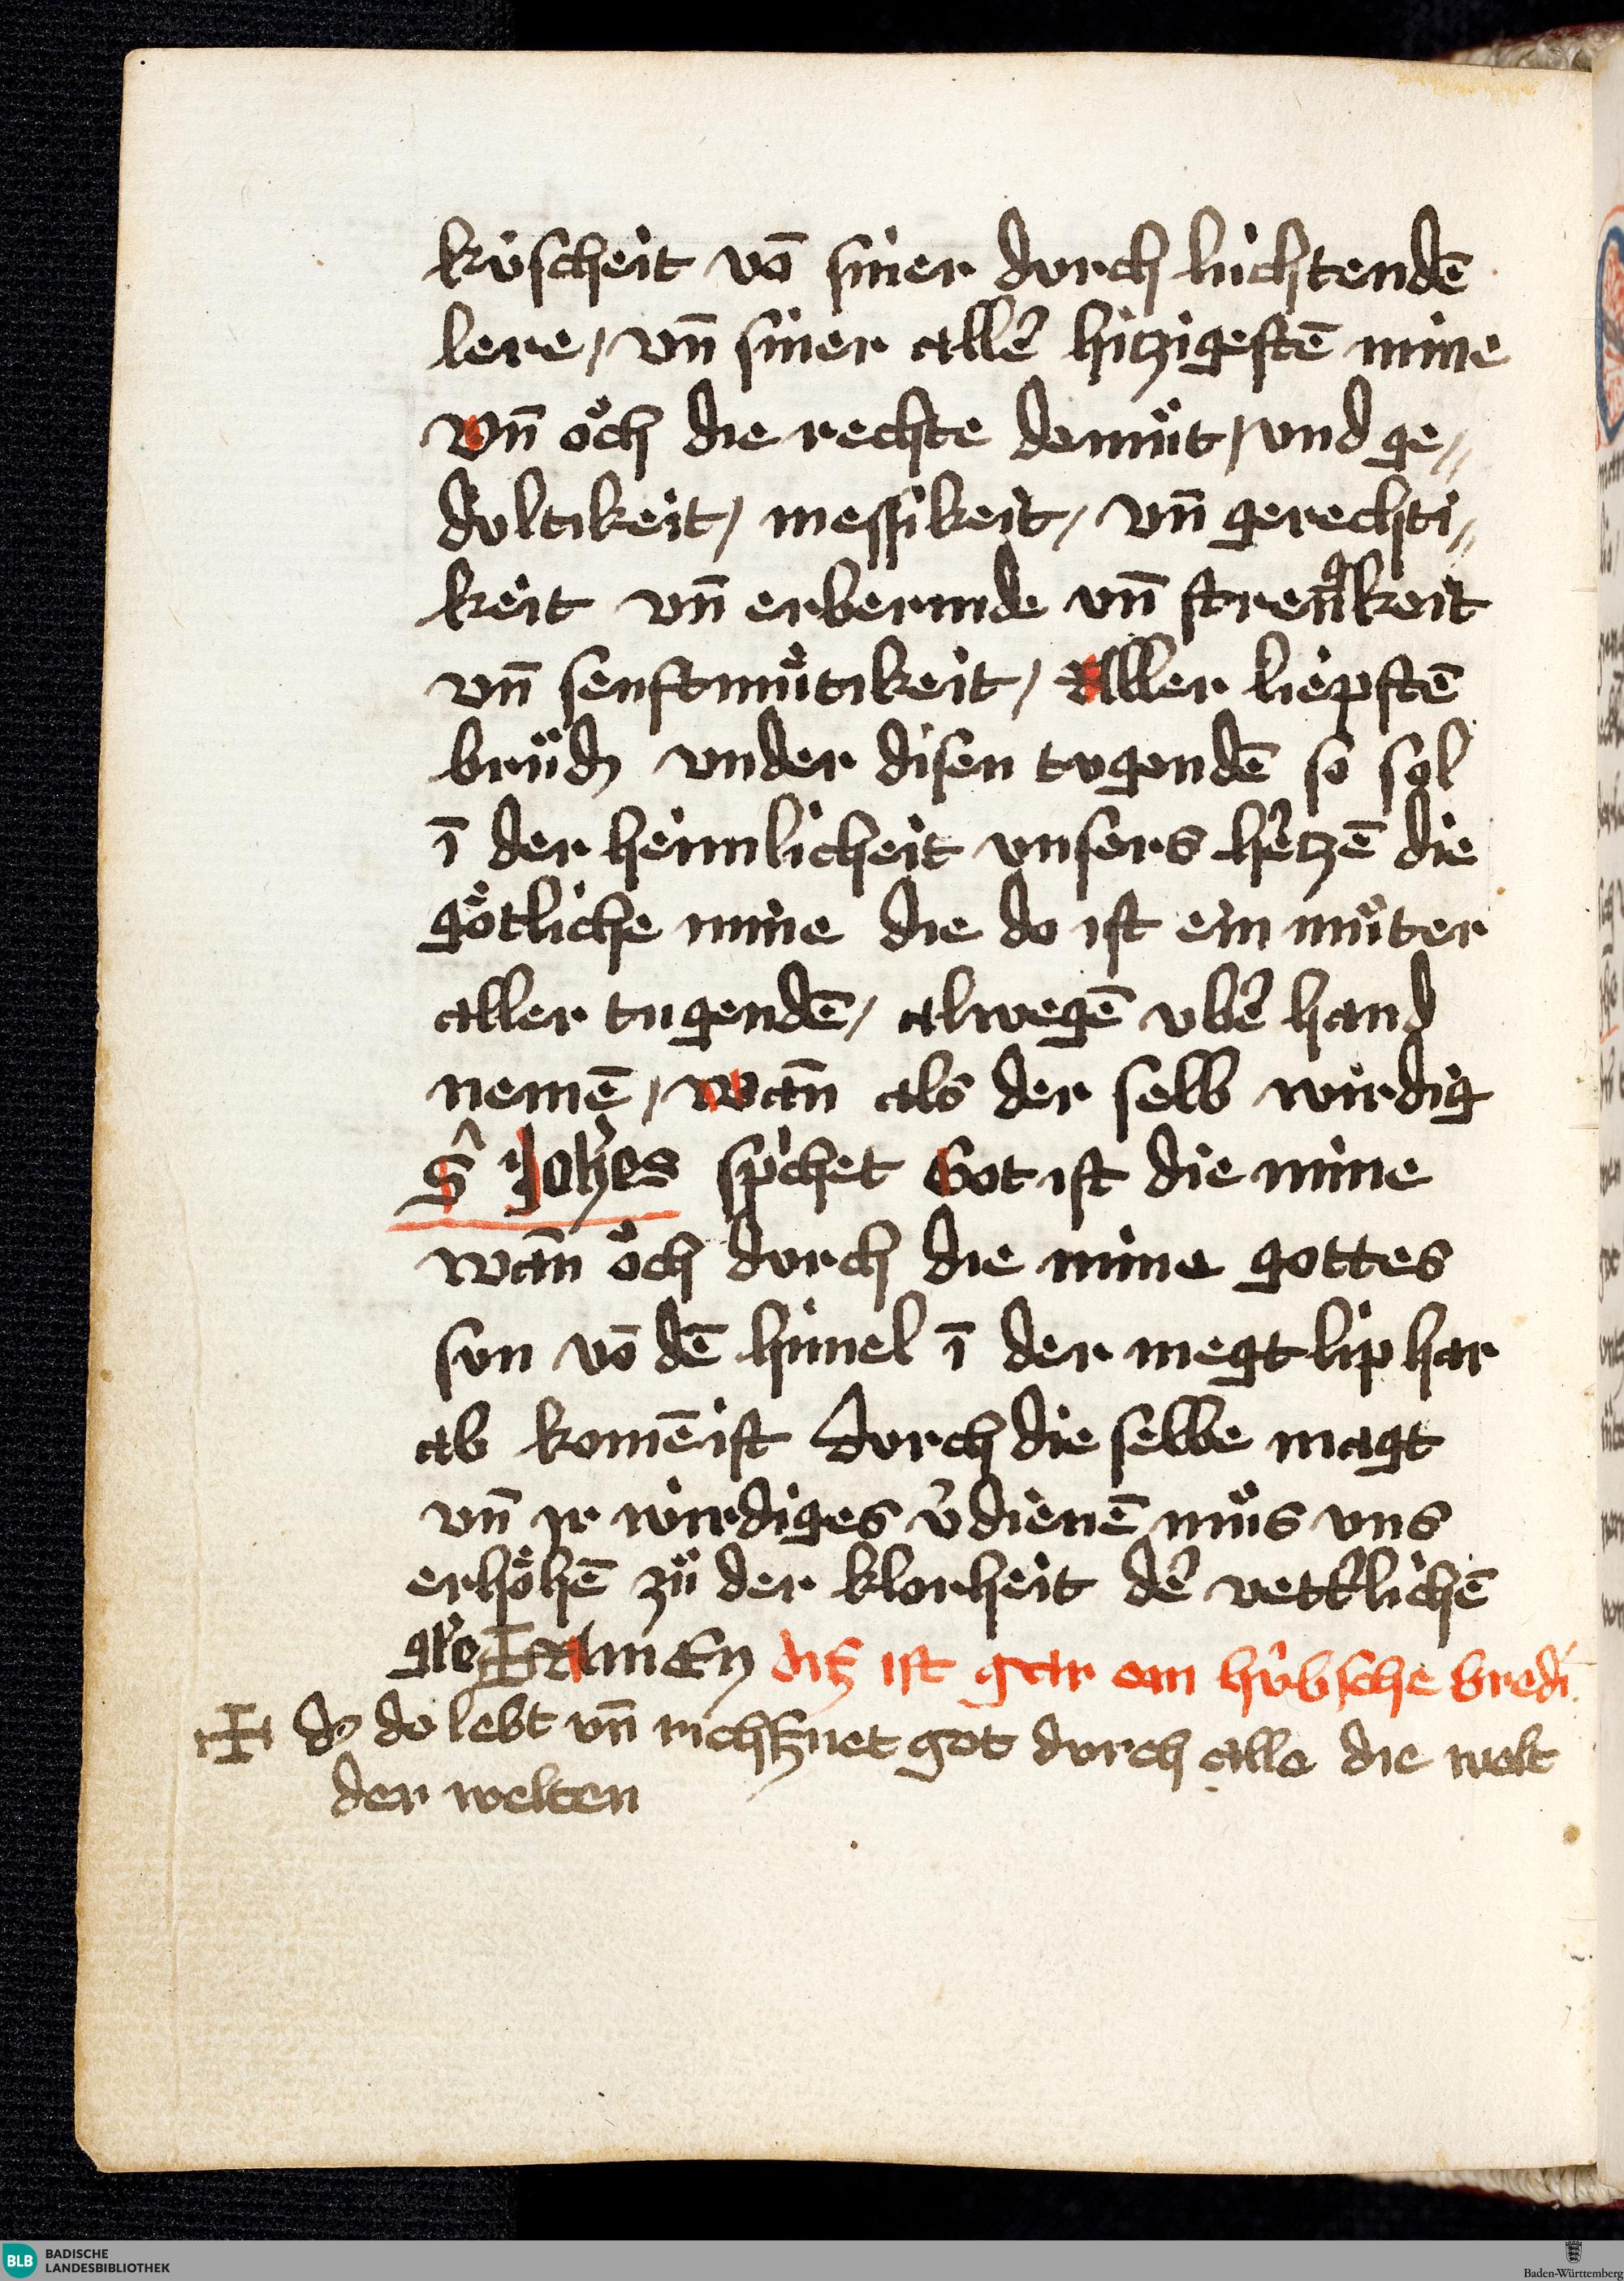 kv̇scheit vō siner dvrch lùchtendē
lere / vn̄ siner allе᷑ hitzigestē mine
vn̄ oͮch die rechte demuͤt / vnd ge〃
dvltikeit / messikeit / vn̄ gerechti〃
keit vn̄ erbermde vn̄ strengkeit
vn̄ senftmuͤtikeit / Aller liepstē
bruͤd᷑ vnder disen tvgendē so sol
ī der heimlicheit vnsers he᷑tzē die
goͤtliche mine die do ist ein muͤter
aller tugendē / alwegē vbe᷑ hand
nemē / wan̄ als der selb wirdig
S᷑ Joh̄es sp̍chet Got ist die mine
wan̄ oͮch dvrch die mine gottes
svn vō dē himel ī der megt lip har
ab komē ist dvrch die selbe magt
vn̄ ir wirdiges v᷑dienē muͤs vns
erhoͤhē zuͤ der klorheit de᷑ vett᷑lichē
gl̓e ‡ AmEn ditz ist gar ein hv̇bsche bredi
‡ d᷑ do lebt vn̄ richßnet got dvrch alle die welt
der welten
BLB BADISCHE
LANDESBIBLIOTHEK
Baden-Württemberg